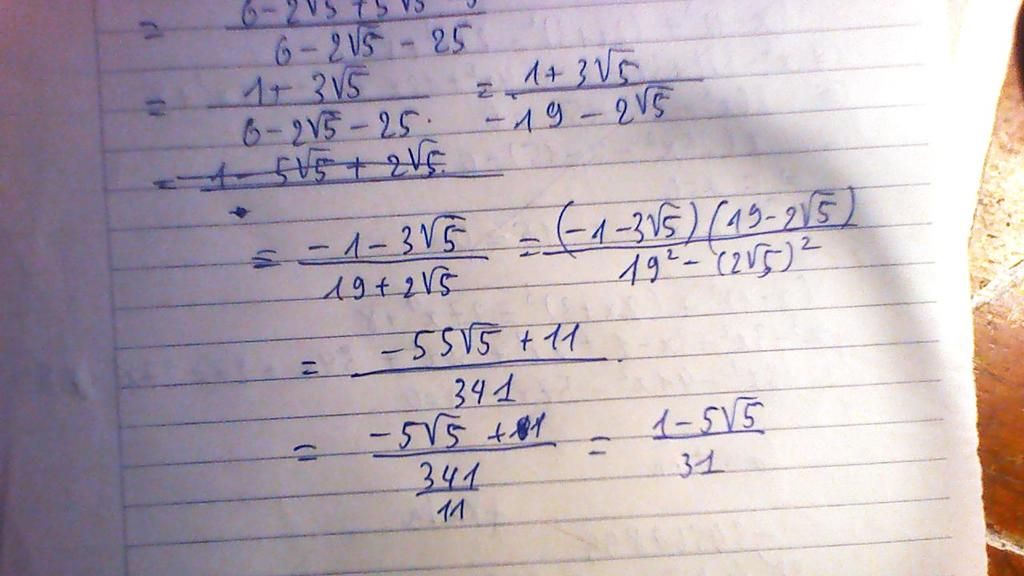 = 6 - 2√5 + 5√5 - 5 / 6 - 2√5 - 25
= 1 + 3√5 / 6 - 2√5 - 25. = 1 + 3√5 / -19 - 2√5
= 1 - 5√5 + 2√5.
= -1 - 3√5 / 19 + 2√5 = (-1 - 3√5)(19 - 2√5) / 19² - (2√5)²
= -55√5 + 11 / 341
= -5√5 + 1 / 341/11 = 1 - 5√5 / 31